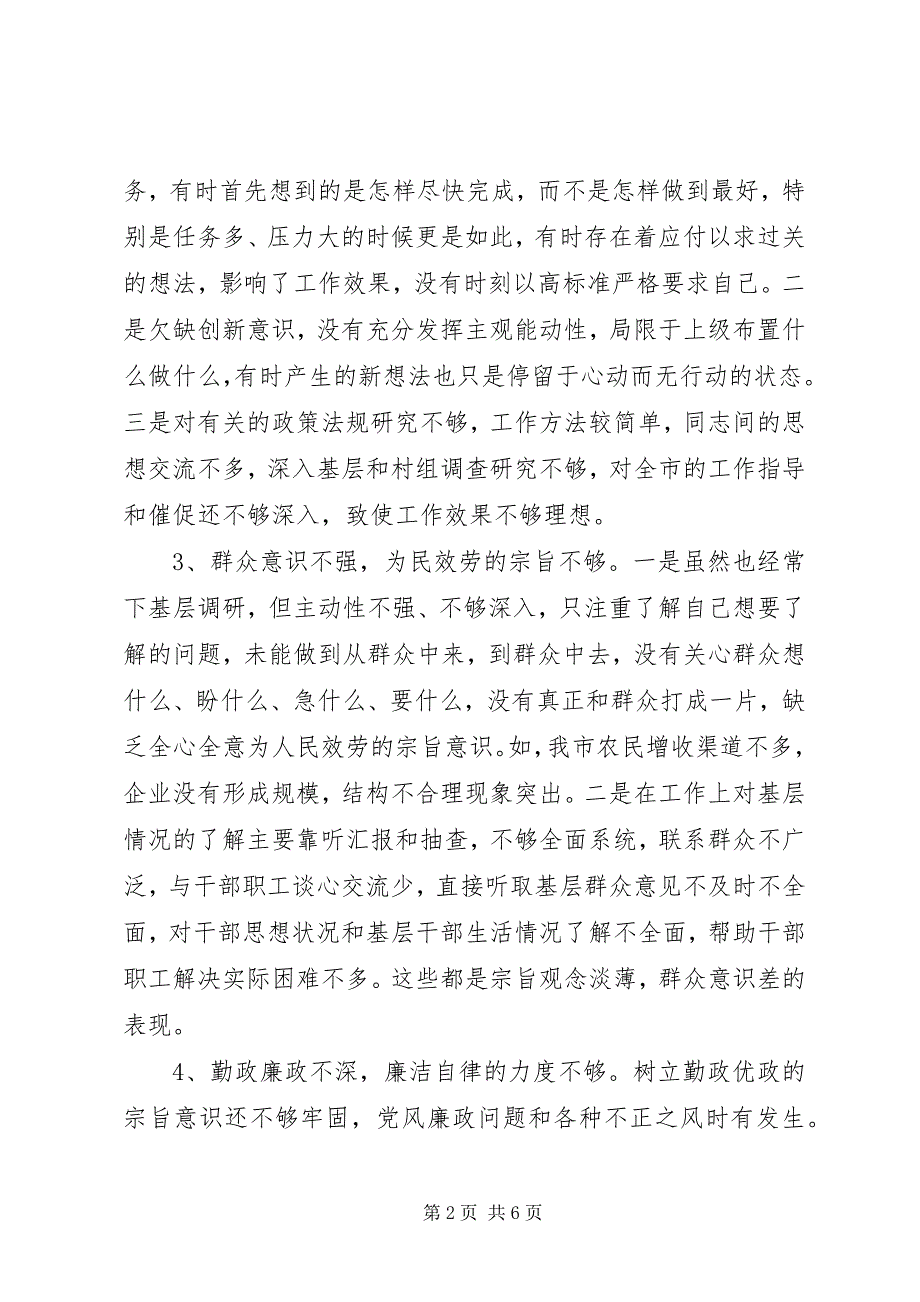 务，有时首先想到的是怎样尽快完成，而不是怎样做到最好，特
别是任务多、压力大的时候更是如此，有时存在着应付以求过关
的想法，影响了工作效果，没有时刻以高标准严格要求自己。二
是欠缺创新意识，没有充分发挥主观能动性，局限于上级布置什
么做什么，有时产生的新想法也只是停留于心动而无行动的状态。
三是对有关的政策法规研究不够，工作方法较简单，同志间的思
想交流不多，深入基层和村组调查研究不够，对全市的工作指导
和催促还不够深入，致使工作效果不够理想。
3、群众意识不强，为民效劳的宗旨不够。一是虽然也经常
下基层调研，但主动性不强、不够深入，只注重了解自己想要了
解的问题，未能做到从群众中来，到群众中去，没有关心群众想
什么、盼什么、急什么、要什么，没有真正和群众打成一片，缺
乏全心全意为人民效劳的宗旨意识。如，我市农民增收渠道不多，
企业没有形成规模，结构不合理现象突出。二是在工作上对基层
情况的了解主要靠听汇报和抽查，不够全面系统，联系群众不广
泛，与干部职工谈心交流少，直接听取基层群众意见不及时不全
面，对干部思想状况和基层干部生活情况了解不全面，帮助干部
职工解决实际困难不多。这些都是宗旨观念淡薄，群众意识差的
表现。
4、勤政廉政不深，廉洁自律的力度不够。树立勤政优政的
宗旨意识还不够牢固，党风廉政问题和各种不正之风时有发生。
第 2 页 共 6 页